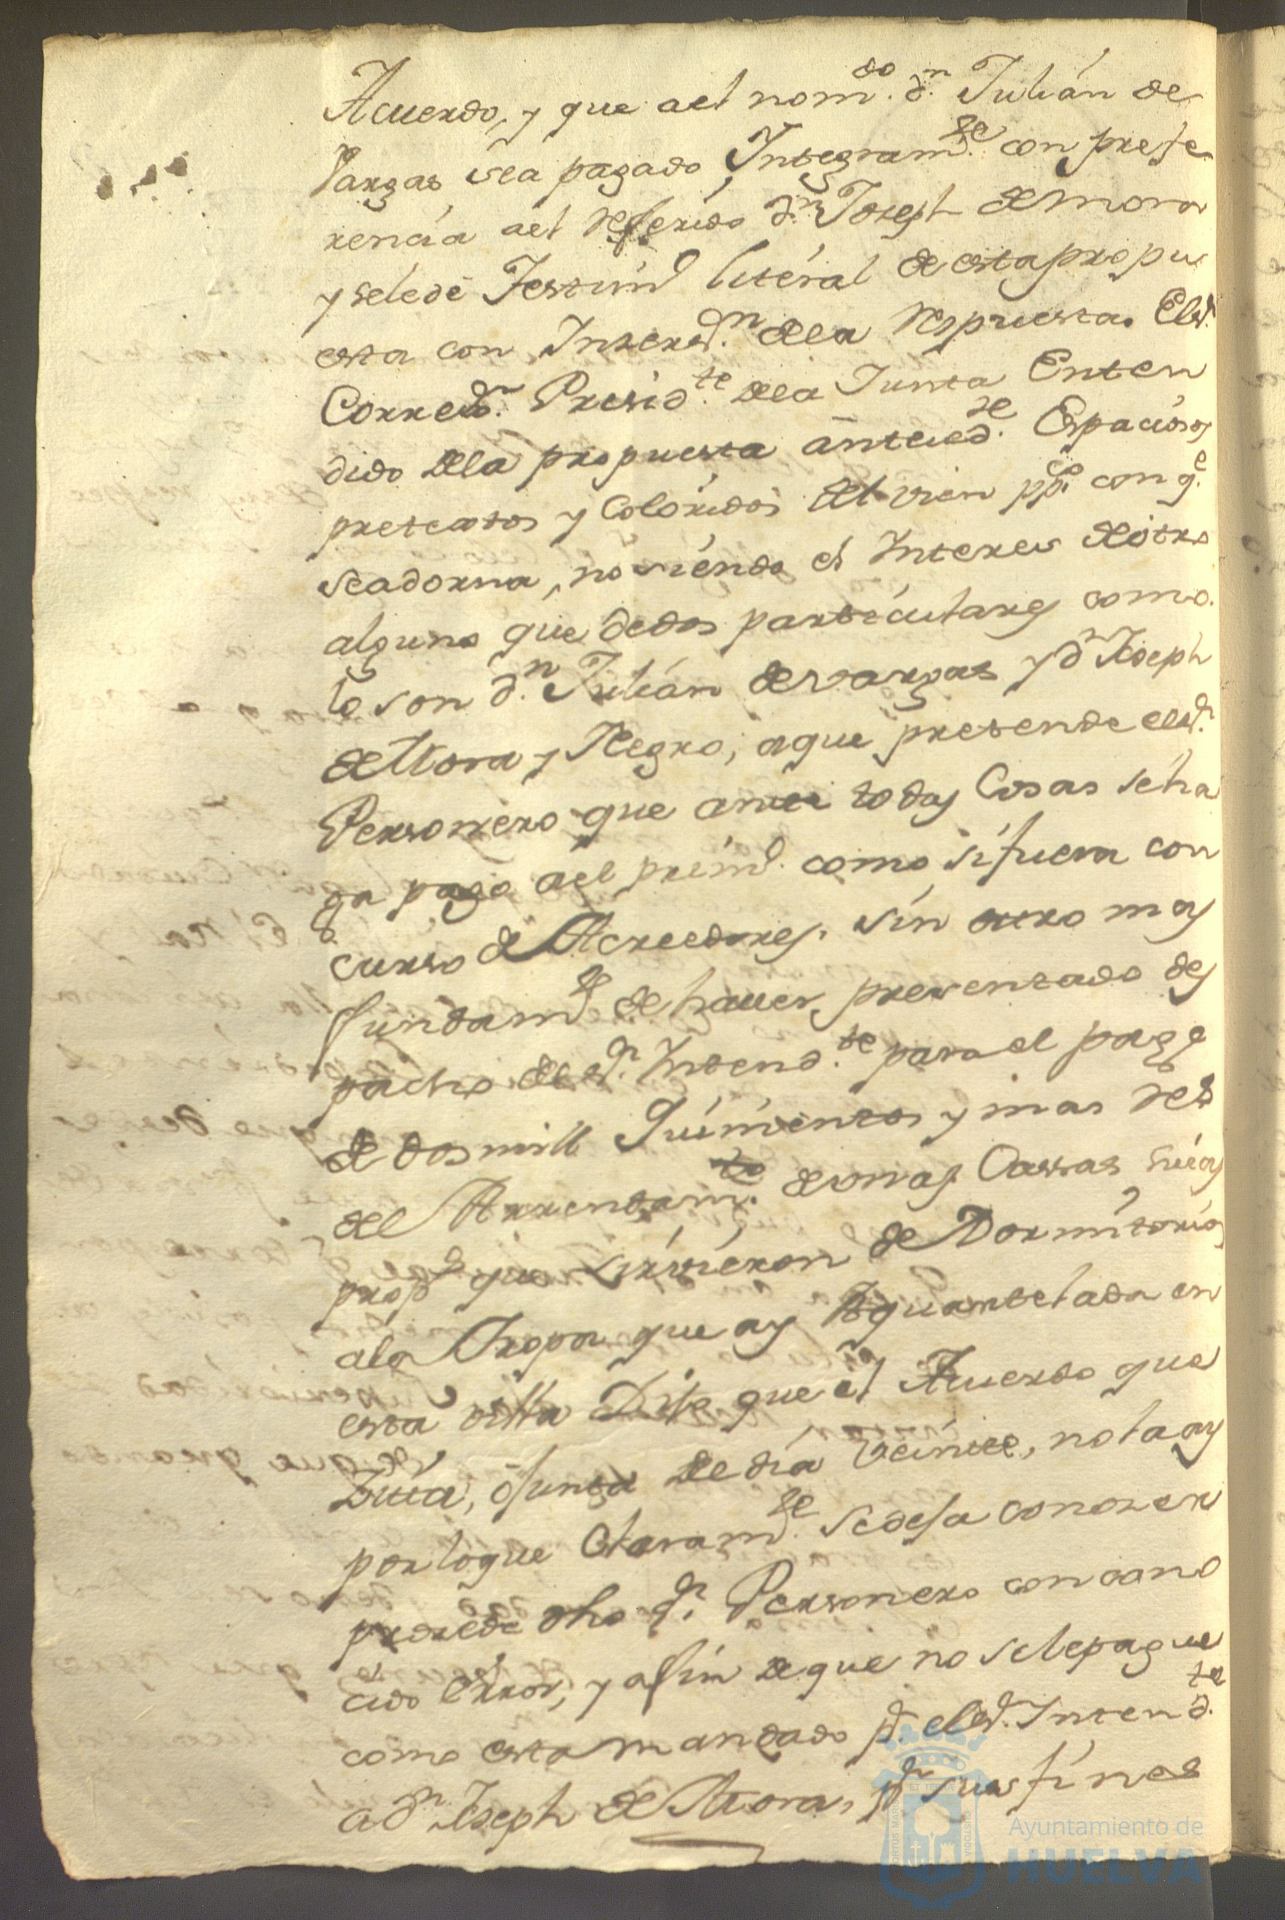 Acuerdo, y que ael nom.do d.n Julián de
Vargas sea pagado Integram.te con prefe
rencia ael referido d.n Joseph de Mora
y sele dé Testim.o literal de esta propu
esta con Inserz.n dela respuesta. El s.r
Corred.r Presid.te dela Junta Enten
dido dela propuesta anteced.te Espaciosos
pretextos y Coloridos del vien pp.co con q.e
seadorna, no siendo el Interes de otro
alguno que dedos particulares como
lo son d.n Julián de vargas y d.n Joseph
de Mora y Negro, aque pretende el s.r
Personero que ante todas Cosas seha
ga pago ael prim.o como sifuera con
curso de Acreedores, sin otro mas
fundam.to de haver presentado des
pacho del s.r Intend.te para el pago
de dos mill Quinientos y mas rs
del Arrendam.to de unas Cassas suias
prop.s que sirvieron de Dormitorios
ala Tropa que ay Aquartelada en
esta villa Dijo que el Acuerdo que
Zita, ó Junta de dia veinte, nola ay
por loque Claram.te sedeja conozer
prozede dho s.r Personero con cono
cido error, y afin de que no sele pague
como esta mandado p.r el s.r Intend.te
a d.n Joseph de Mora, p.r sus fines
Ayuntamiento de
HUELVA